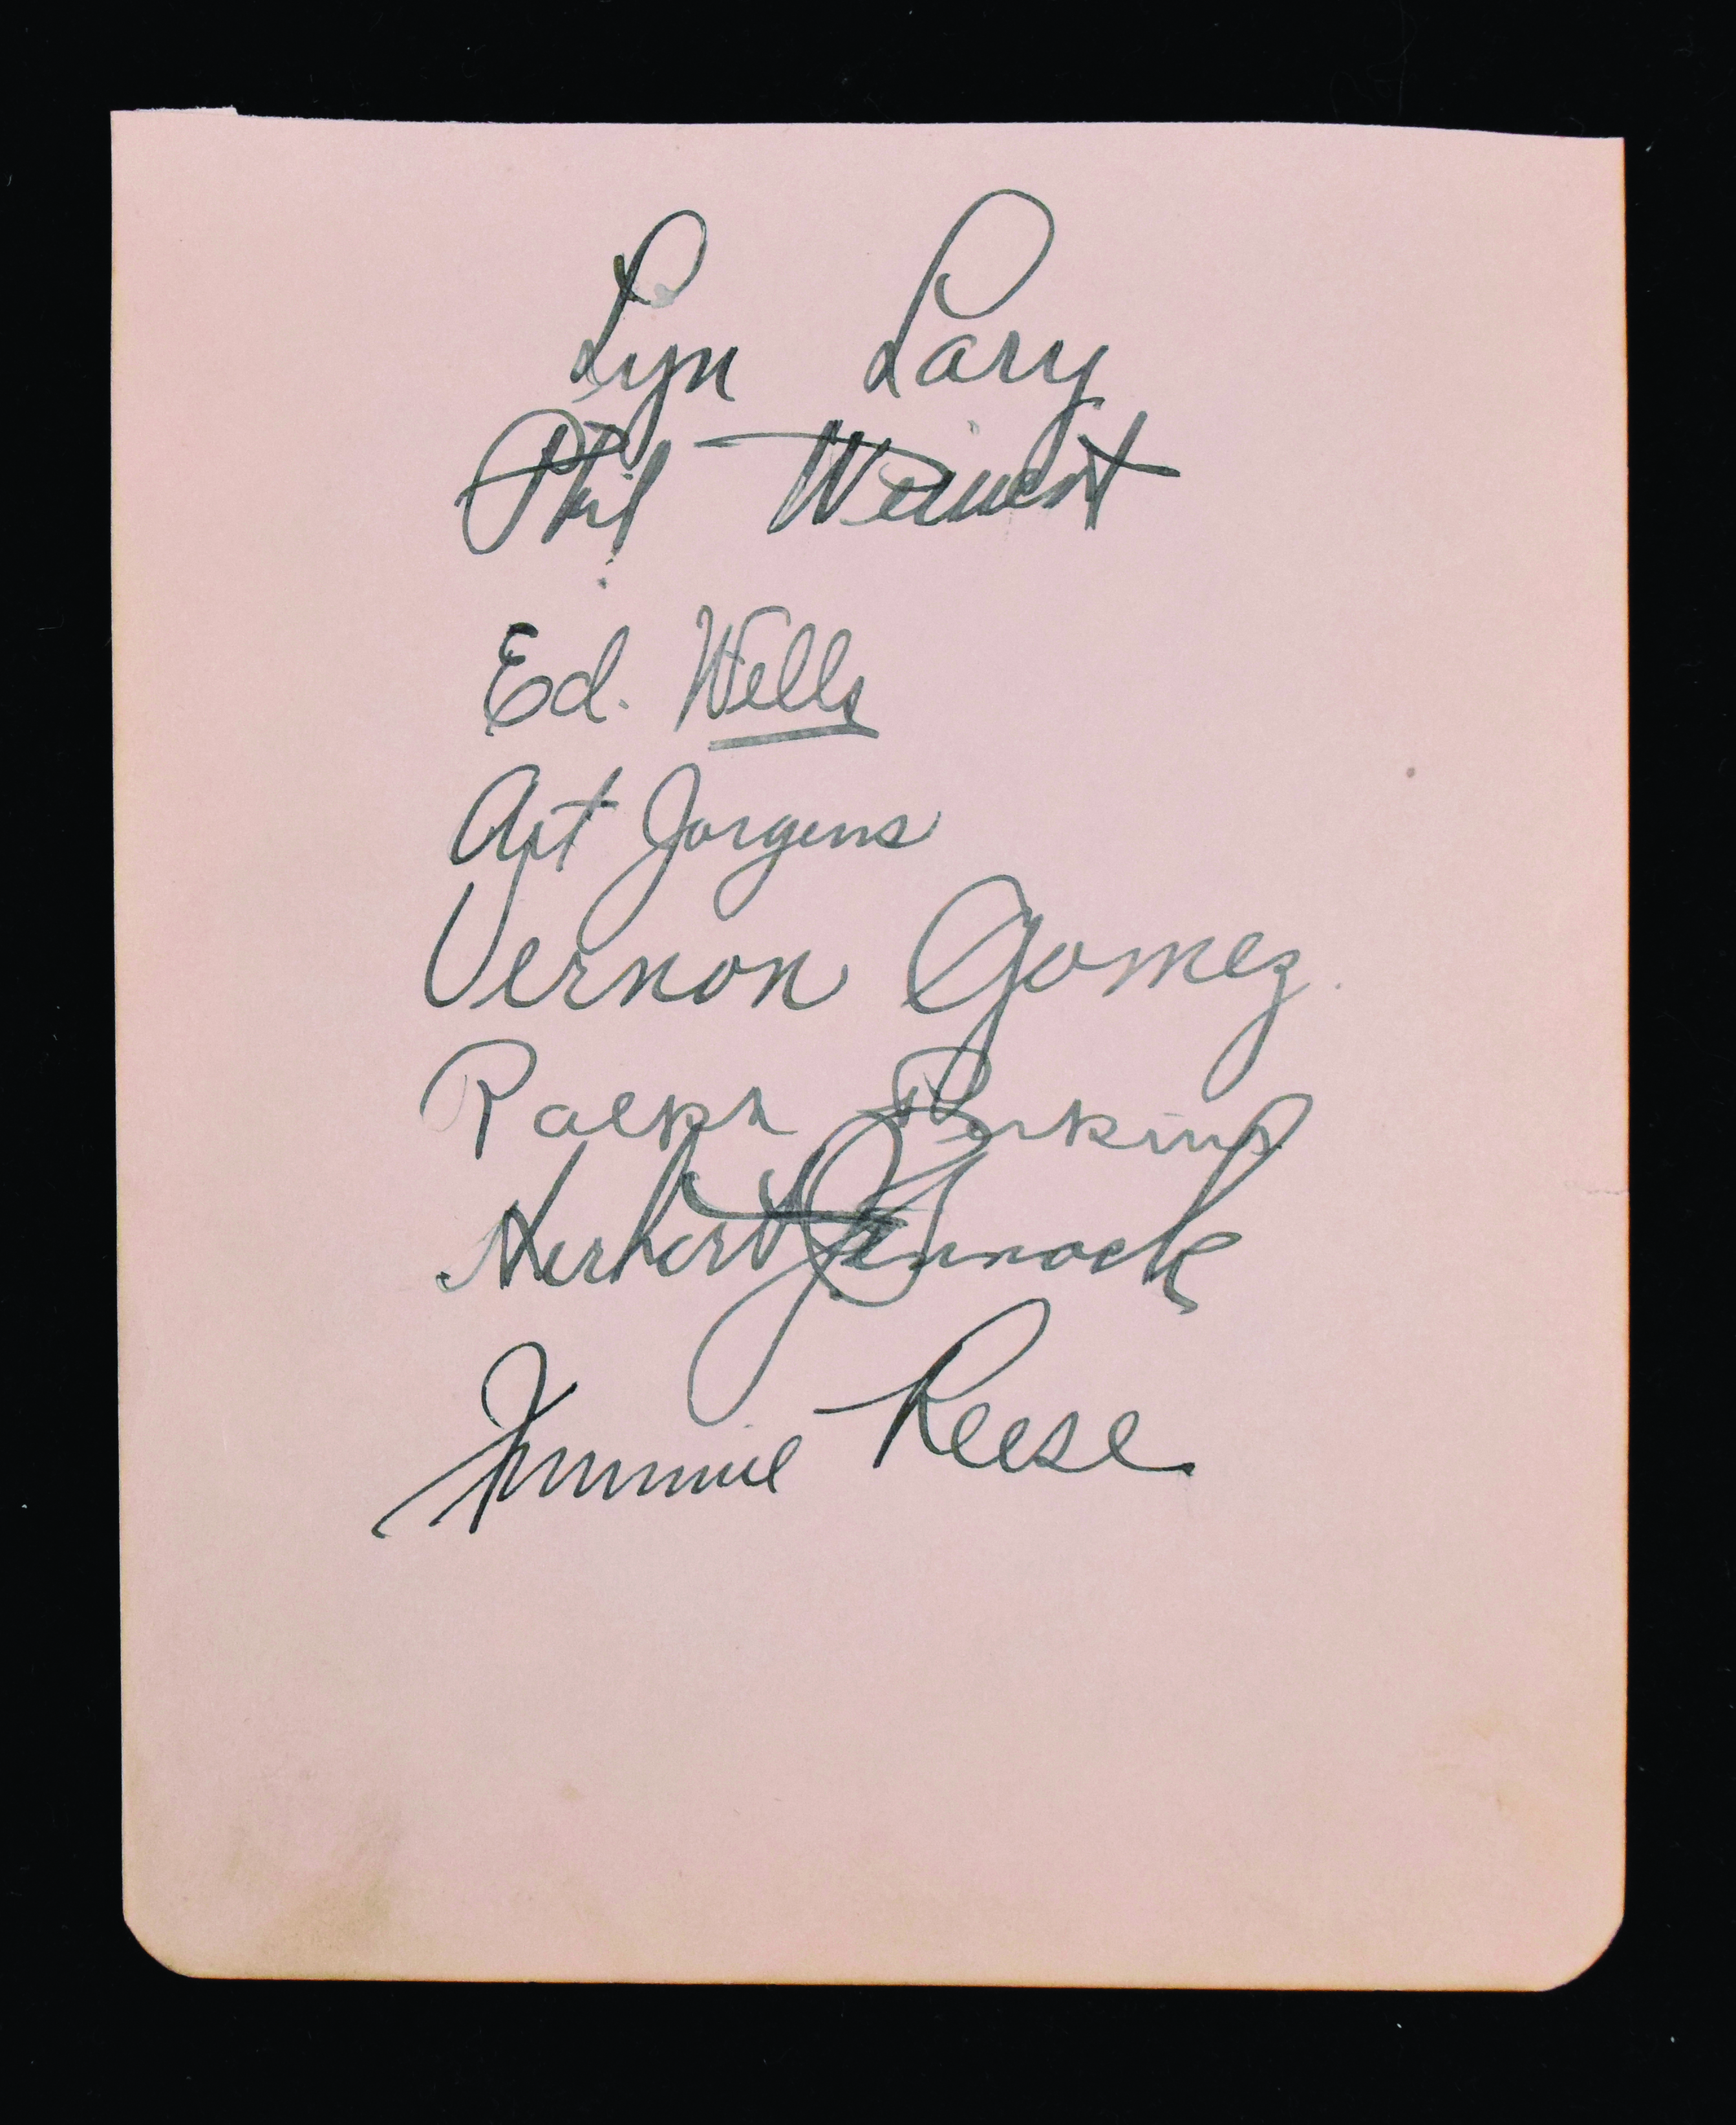 Lyn Lary
Phil Weinert
Ed. Wells
Art Jorgens
Vernon Gomez.
Ralph Perkins
Herbert Pennock
Jimmie Reese